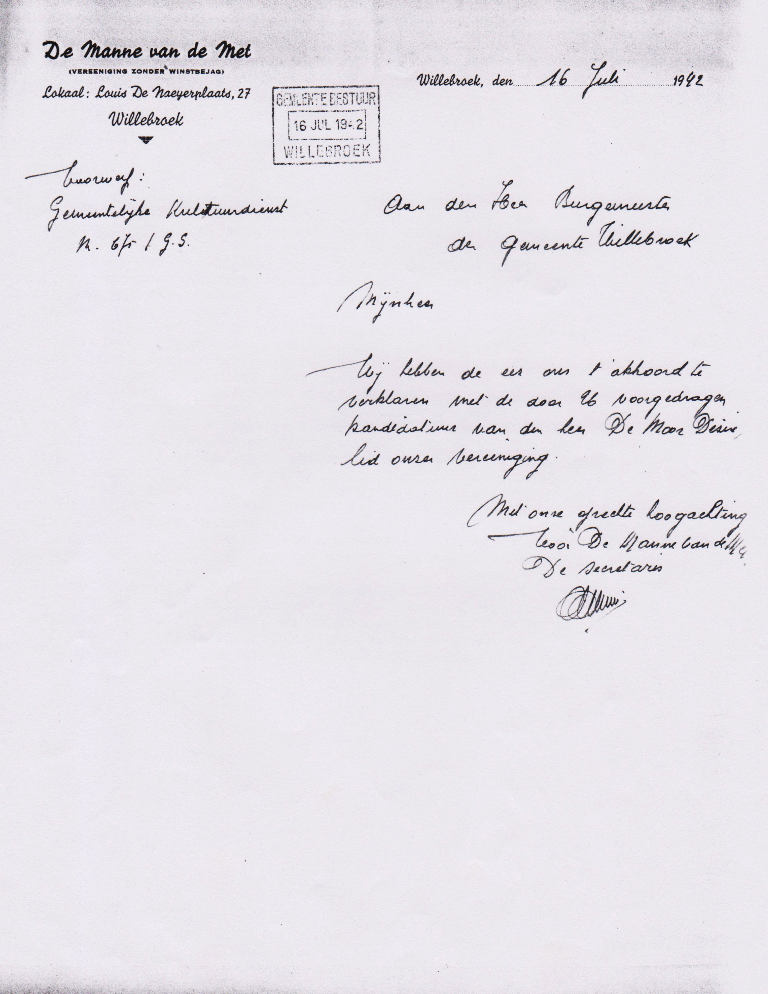 De Manne van de Met
(VEREENIGING ZONDER WINSTBEJAG)
Lokaal: Louis De Naeyerplaats, 27
Willebroek
Willebroek, den 16 Juli 1942
GEMEENTEBESTUUR
16 JUL 1942
WILLEBROEK
Voorwerp:
Gemeentelijke Kulstuurdienst
N. 675 / G.S.
Aan den Heer Burgemeester
der gemeente Willebroek
Mijnheer
Wij hebben de eer ons t'akkoord te
verklaren met de door U voorgedragen
kandidatuur van den heer De Moor Désiré,
lid onzer vereeniging.
Met onze oprechte hoogachting
Voor De Manne van de Met
De secretaris